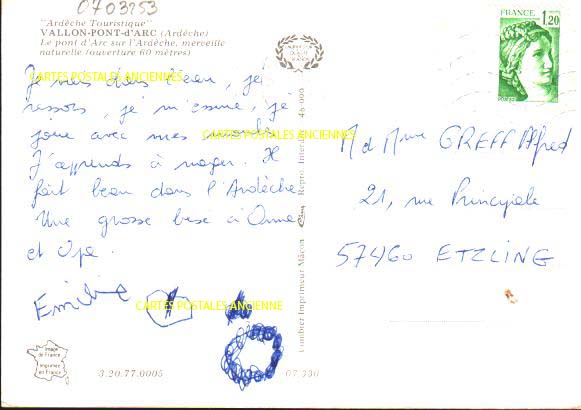 0703253
"Ardèche Touristique"
VALLON-PONT-d'ARC (Ardèche)
Le pont d'Arc sur l'Ardèche, merveille
naturelle (ouverture 60 mètres)
CARTES POSTALES ANCIENNES
Je vais dans l'eau, je
ressors, je m'essuie, je
joue avec mes
CARTES POSTALES ANCIENNES
J'apprends à nager. Il
fait beau dans l'Ardèche
Une grosse bise à Oma
et Opa.
Emilie
CARTES POSTALES ANCIENNE
Image de France
Imprimée en France
3.20.77.0005
07.330
Combier Imprimeur Mâcon
Repro. Interd.
46 000
FRANCE
1,20
POSTES
M et Mme GREFF Alfred
21, rue Principale
57460 ETZLING